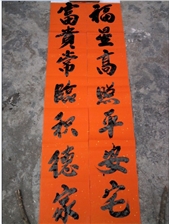 福星高照平安宅
富貴常臨积德家